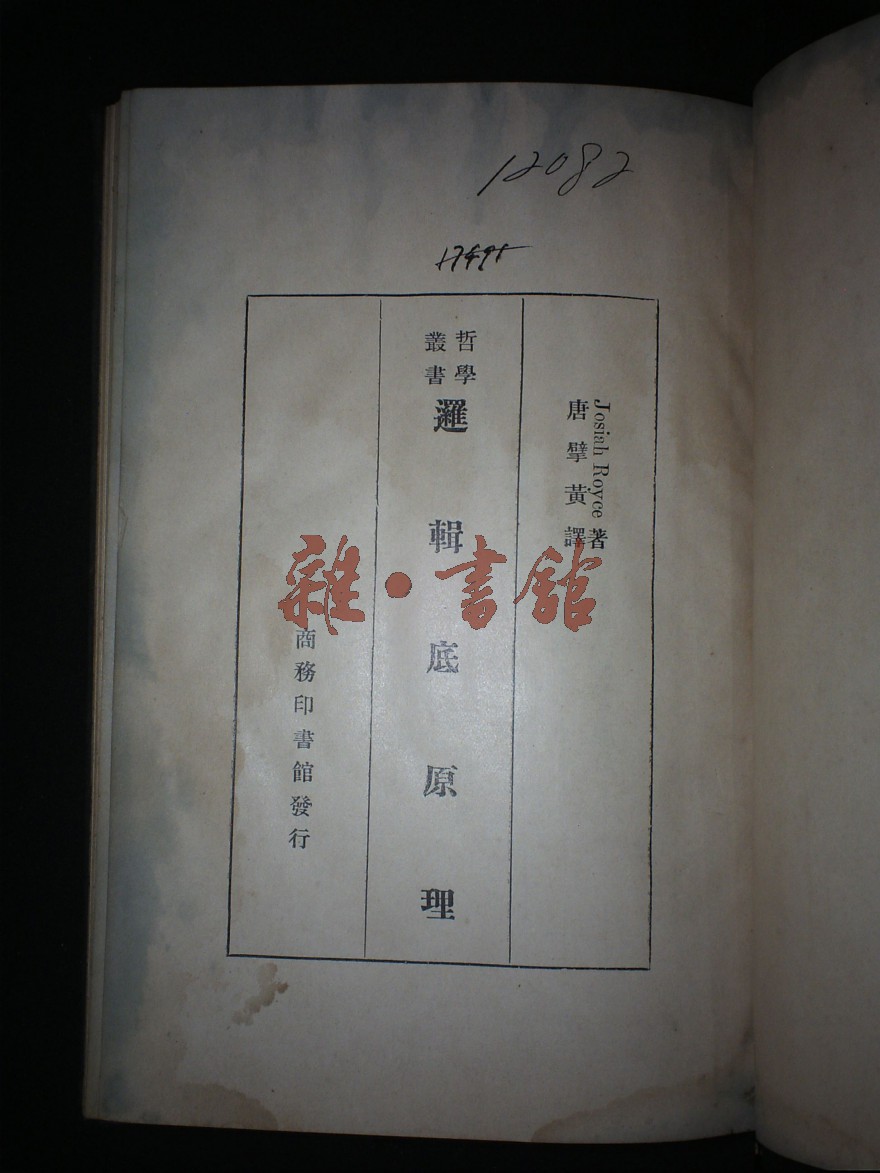 12082
Josiah Royce 著
唐擘黃 譯
哲學
叢書
邏輯底原理
商務印書館發行
雜·書館